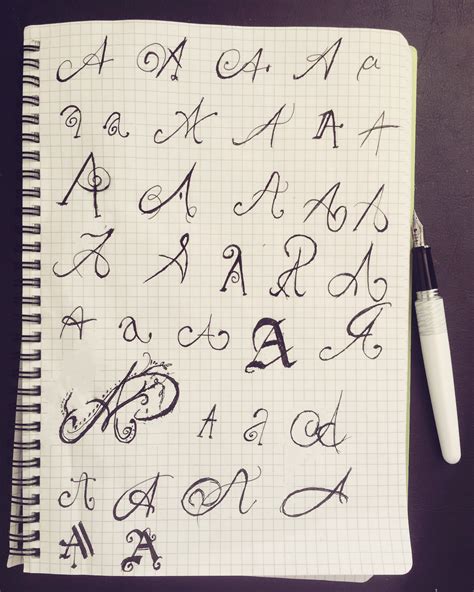 A A A A a
a a A A A A
A A A A A
A A A A A
A a A A A
A A a A
A A A A
A A